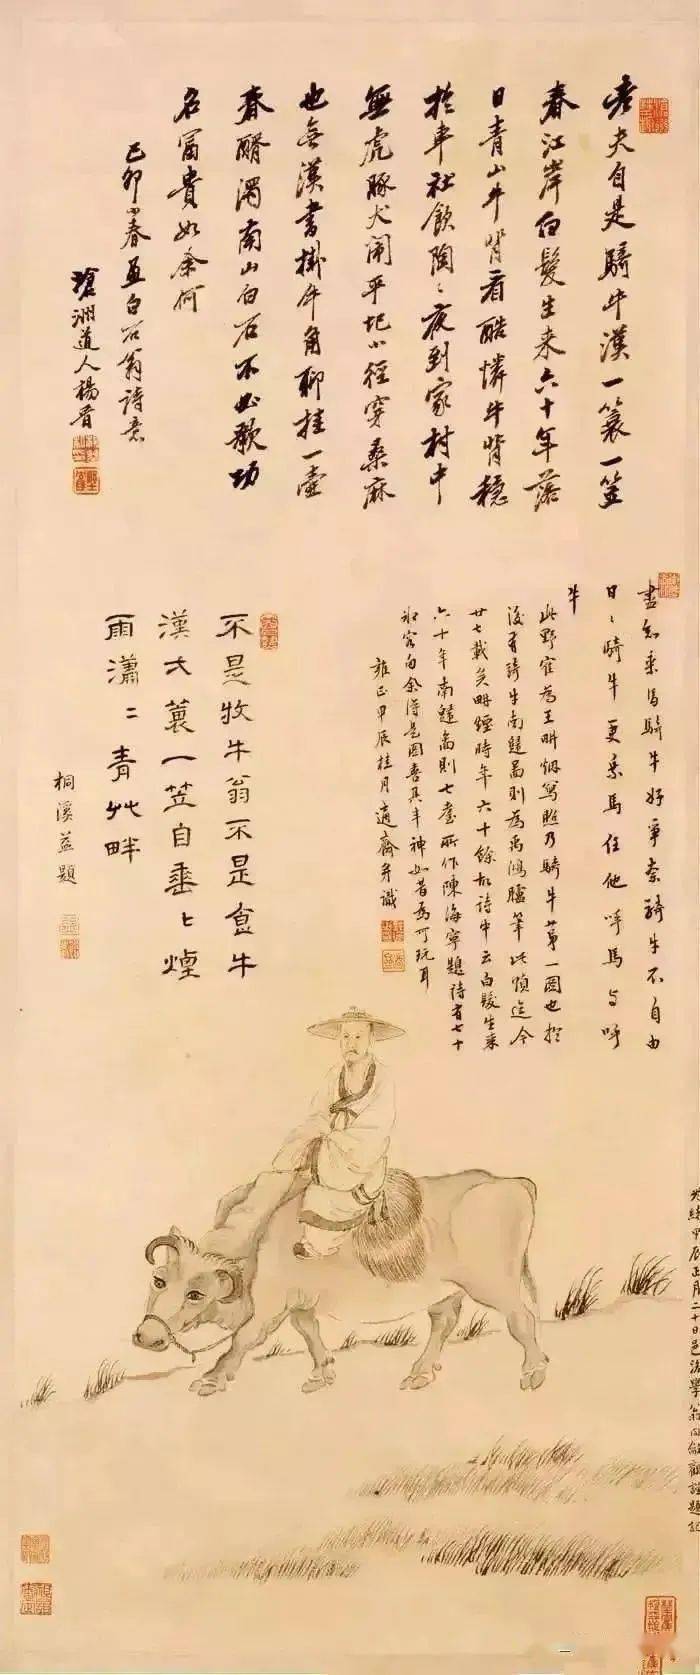 老夫自是騎牛漢一簑一笠
春江岸白髮生来六十年落
日青山牛背看酷憐牛背穩
於車社飲陶〻夜到家村中
無虎豚犬鬧平圯小徑穿桑麻
也無漢書掛牛角聊挂一壺
春醑濁南山白石不必歌功
名富貴如余何
己卯小春画白石翁詩意
瑲洲道人楊晉
盡知乘馬騎牛好爭柰騎牛不自由
日〻騎牛更乘馬任他呼馬与呼
牛
此野寉為王畊烟寫照乃騎牛苐一圖也於
後有騎牛南䟆啚則為禹鴻臚筆此幀迄今
廿七載矣畊煙時年六十餘故詩中云白髮生来
六十年南䟆啚則七耋所作陳海寧題詩有七十
狀容句余得是圖喜其丰神如昔為可玩耳
雍正甲辰桂月適齋弁識
不是牧牛翁不是食牛
漢弌蓑一笠自垂〻煙
雨瀟〻青艸畔
桐溪益題
光緒甲辰正月二十日邑後學翁同龢觀謹題記